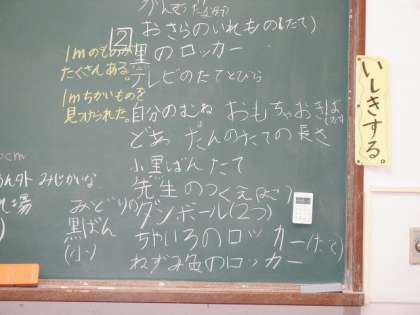 おさらのいれもの(たて)
2
のロッカー
テレビのたてとびら
自分のむね おもちゃおきば
どあ だんのたての長さ
小黒ばん たて
先生のつくえ(よこ)
みどりのダンボール(2つ)
ちゃいろのロッカー(たて)
ねずみ色のロッカー
黒ばん
(小)
1mのものが
たくさんある。
1mちかいものを
見つけられた。
cm
みじかいな
いしきする。